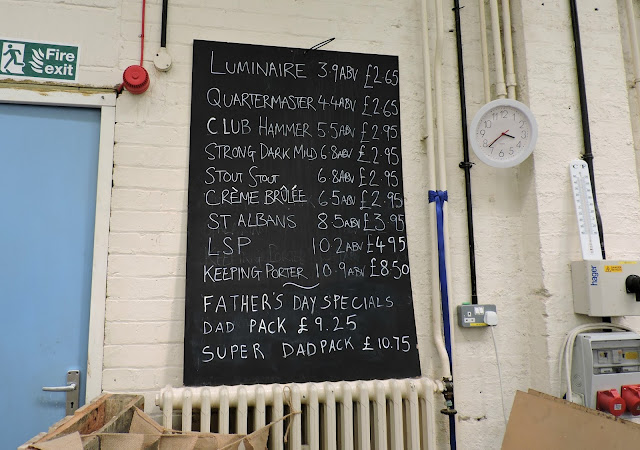 Fire
exit
LUMINAIRE 3.9ABV £2.65
QUARTERMASTER 4.4ABV £2.65
CLUB HAMMER 5.5ABV £2.95
STRONG DARK MILD 6.8ABV £2.95
STOUT STOUT 6.8ABV £2.95
CRÈME BRÛLÉE 6.5ABV £2.95
ST ALBANS 8.5ABV £3.95
LSP 10.2ABV £4.95
KEEPING PORTER 10.9ABV £8.50
FATHER'S DAY SPECIALS
DAD PACK £9.25
SUPER DAD PACK £10.75
hager